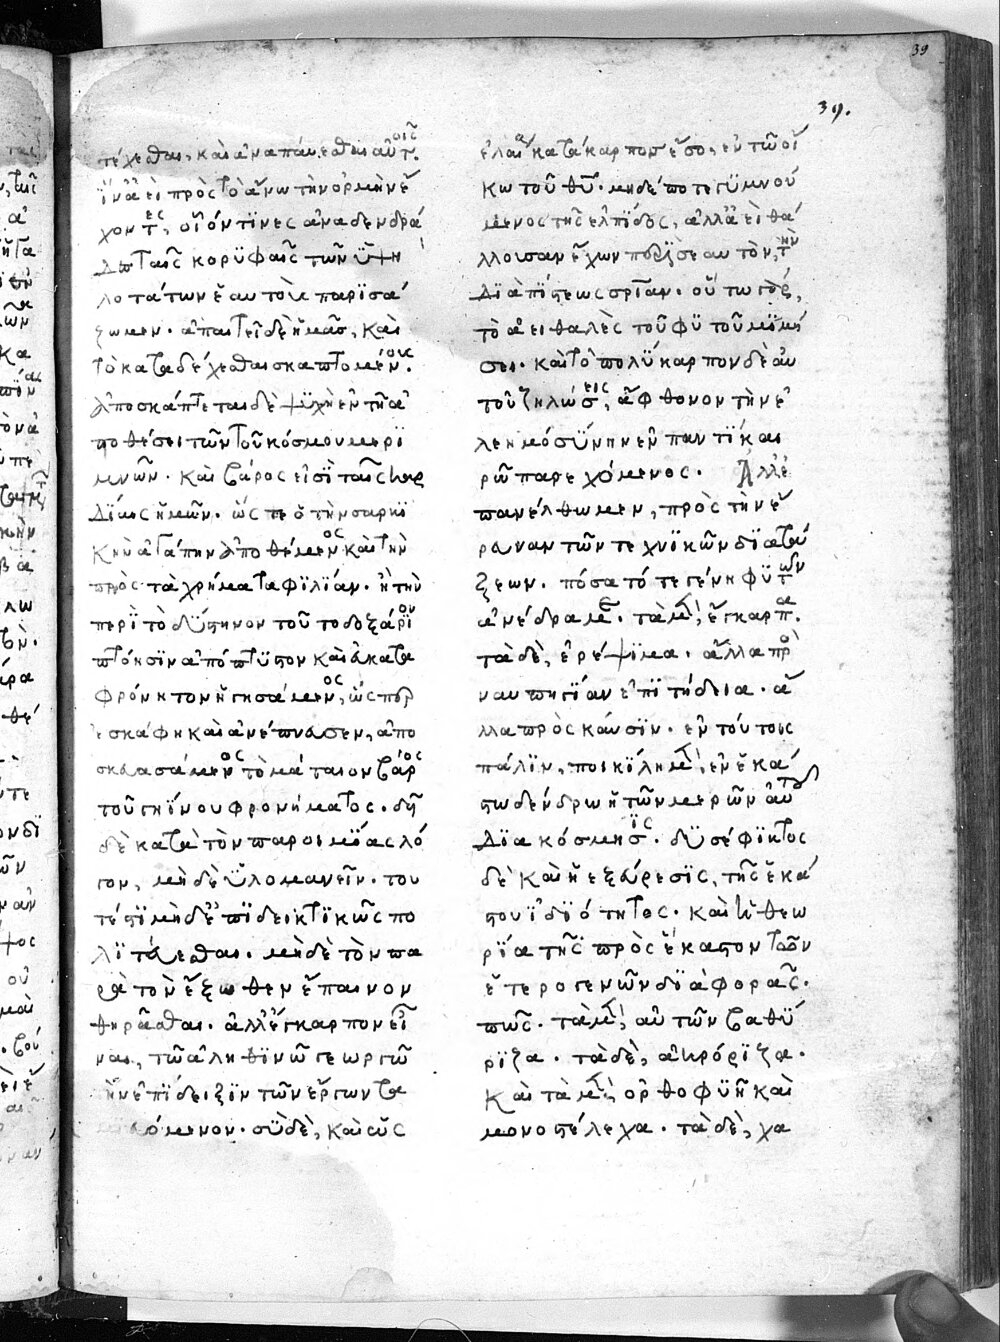 39
39.
τέχεσθαι, καὶ ἀναπάυεσθαι αὐτοῖς.
ἵνα ἀεὶ πρὸς τὸ ἄνω τὴν ὁρμὴν ἔ
χοντες, οἷόν τινες ἀναδενδρά
δες ταῖς κορυφαῖς τῶν ὑψη
λοτάτων ἑαυτοὺς παρισά
ζωμεν. ἀπαιτεῖ δὲ ἡμᾶς, καὶ
τὸ καταδέχεσθαι σκαπτομένους.
ἀποσκάπτεται δὲ ψυχὴ ἐν τῇ ἀ
ποθέσει τῶν τοῦ κόσμου μερι
μνῶν. καὶ βάρος εἰσὶ ταῖς καρ
δίαις ἡμῶν. ὥστε ὁ τὴν σαρκι
κὴν ἀγάπην ἀποθέμενος καὶ τὴν
πρὸς τὰ χρήματα φιλίαν. ἢ τὴν
περὶ τὸ δύστηνον τοῦτο δοξάριον
πτόησιν ἀπόπτυστον καὶ ἐυκατα
φρόνητον ἡγησάμενος, ὥσπερ
ἐσκάφη καὶ ἀνέπνευσεν, ἀπο
σκευασάμενος τὸ μάταιον βάρος
τοῦ γηΐνου φρονήματος. δεῖ
δὲ κατὰ τὸν παροιμίας λό
γον, μηδὲ ὑλομανεῖν. του
τέστι μηδ' ἐπιδεικτικῶς πο
λιτεύεσθαι. μηδὲ τὸν πα
ρὰ τὸν ἔξωθεν ἔπαινον
θηρᾶσθαι. ἀλλ' ἔγκαρπον εἶ
ναι, τῶ ἀληθινῶ γεωργῶ
τὴν ἐπίδειξιν τῶν ἔργων τα
μιευόμενον. σὺ δὲ, καὶ ὡς
ἐλαία κατάκαρπος ἔσο, ἐν τῶ οἴ
κω τοῦ θυ. μηδέποτε γυμνού
μενος τῆς ἐλπίδος, ἀλλ' ἀεὶ θά
λλουσαν ἔχων περὶ σεαυτὸν, τὴν
διὰ πίστεως σρίαν. οὕτω γὰρ,
τὸ ἀειθαλὲς τοῦ φυτοῦ μιμή
σει. καὶ τὸ πολύκαρπον δὲ αὐ
τοῦ ζηλώσεις, ἄφθονον τὴν ἐ
λεημοσύνην ἐν παντὶ και
ρῶ παρεχόμενος. Ἀλλ' ἐ
πανέλθωμεν, πρὸς τὴν ἔ
ρευναν τῶν τεχνικῶν διατά
ξεων. πόσα τότε γένη φυτῶν
ἀνέδραμε. τὰ μὲν, ἔγκαρπα.
τὰ δὲ, ἐρέψιμα. ἄλλα πρὸς
ναυπηγίαν ἐπιτήδεια. ἄ
λλα πρὸς καῦσιν. ἐν τούτοις
πάλιν, ποικίλη μὲν, ἐν ἑκά
στω δένδρω ἡ τῶν μερῶν αὐτοῦ
διακόσμησις. δυσέφικτος
δὲ καὶ ἡ ἐξεύρεσις, τῆς ἑκά
στου ἰδιότητος. καὶ ἡ θεω
ρία τῆς πρὸς ἕκαστον τῶν
ἑτερογενῶν διαφορᾶς.
πῶς. τὰ μὲν, αὐτῶν βαθύ
ριζα. τὰ δὲ, ἀκρόριζα.
καὶ τὰ μὲν, ὀρθοφυῆ καὶ
μονοστέλεχα. τὰ δὲ, χα